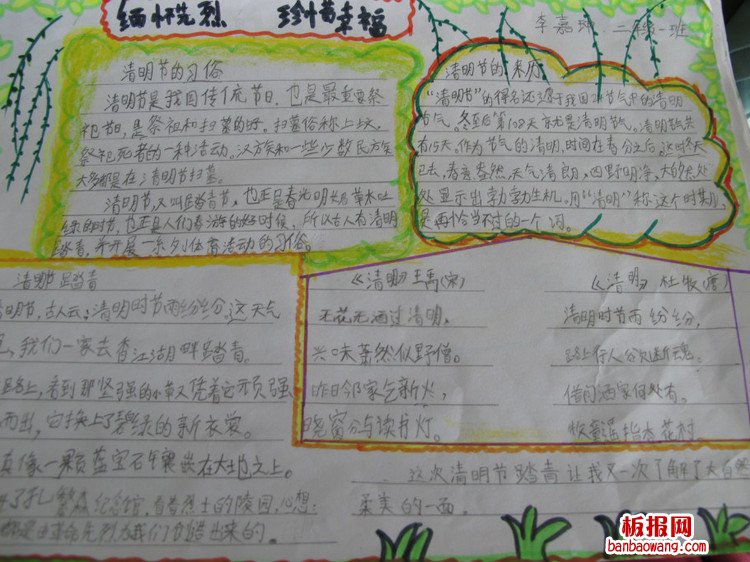 缅怀先烈 珍惜幸福
李嘉 二年级一班
清明节的习俗
清明节是我国传统节日，也是最重要祭
祀节日，是祭祖和扫墓的好。扫墓俗称上坟，
祭祀死者的一种活动。汉族和一些少数民族
大多都是在清明节扫墓。
清明节又叫踏青节，也正是春光明媚草木吐
绿的时节，也正是人们春游的好时候，所以古人有清明
踏青，并开展一系列体育活动的习俗。
清明节的来历
“清明节”的得名还源于我国 节气中的清明
节气。冬至后第108天就是清明节气。清明节气共
有15天。作为节气的清明，时间在春分之后。这时冬天
已去，春意盎然，天气清朗，四野明净，大自然处
处显示出勃勃生机。用“清明”称这个时期，
是再恰当不过的一个词。
清明节踏青
清明节，古人云：清明时节雨纷纷，这天气
，我们一家去香江湖畔踏青。
路上，看到那坚强的小草又凭着它顽强
而出，它换上了碧绿的新衣裳。
像一颗蓝宝石镶嵌在大地之上。
了孔繁森纪念馆，看着烈士的陵园，心想：
都是由革命先烈为我们创造出来的。
《清明》王禹（宋）
无花无酒过清明，
兴味萧然似野僧。
昨日邻家乞新火，
晓窗分与读书灯。
《清明》杜牧（唐）
清明时节雨纷纷，
路上行人欲断魂。
借问酒家何处有。
牧童遥指杏花村。
这次清明节踏青让我又一次了解了大自然
柔美的一面。
板报网
banbaowang.com